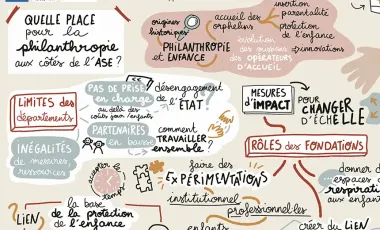 QUELLE PLACE
pour la
philanthropie
aux côtés de l'ASE ?
origines
historiques
accueil des
orphelins
insertion
parentalité
protection
de l'enfance
PHILANTHROPIE
et ENFANCE
évolution des missions
des OPÉRATEURS
D'ACCUEIL
innovations
LIMITES des
départements
INÉGALITÉS
de mesures,
ressources
PAS DE PRISE
en charge
au delà des
coûts pour enfants
PARTENAIRES
en baisse
désengagement
de l'ÉTAT ?
comment
TRAVAILLER
ensemble ?
MESURES
d'IMPACT
pour
CHANGER
D'ÉCHELLE
RÔLES des FONDATIONS
accepter
le temps
faire des
EXPÉRIMENTATIONS
institutionnel
professionnel·les
enfants
donner d
espaces d
respirati
aux enfan
LIEN
la base
de la protection
de l'enfance
créer du LIEN